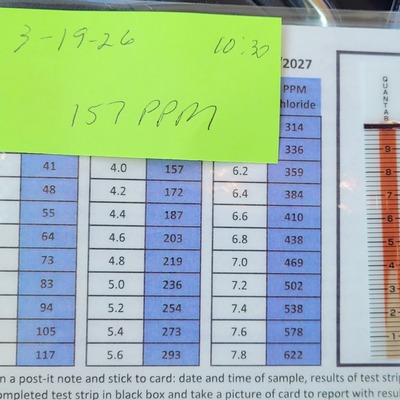 3-19-26 10:30
157 PPM
/2027
PPM
hloride
314
336
41 4.0 157 6.2 359
48 4.2 172 6.4 384
55 4.4 187 6.6 410
64 4.6 203 6.8 438
73 4.8 219 7.0 469
83 5.0 236 7.2 502
94 5.2 254 7.4 538
105 5.4 273 7.6 578
117 5.6 293 7.8 622
QUANTAB
9
8
7
6
5
4
3
2
1
n a post-it note and stick to card: date and time of sample, results of test strip
ompleted test strip in black box and take a picture of card to report with resu